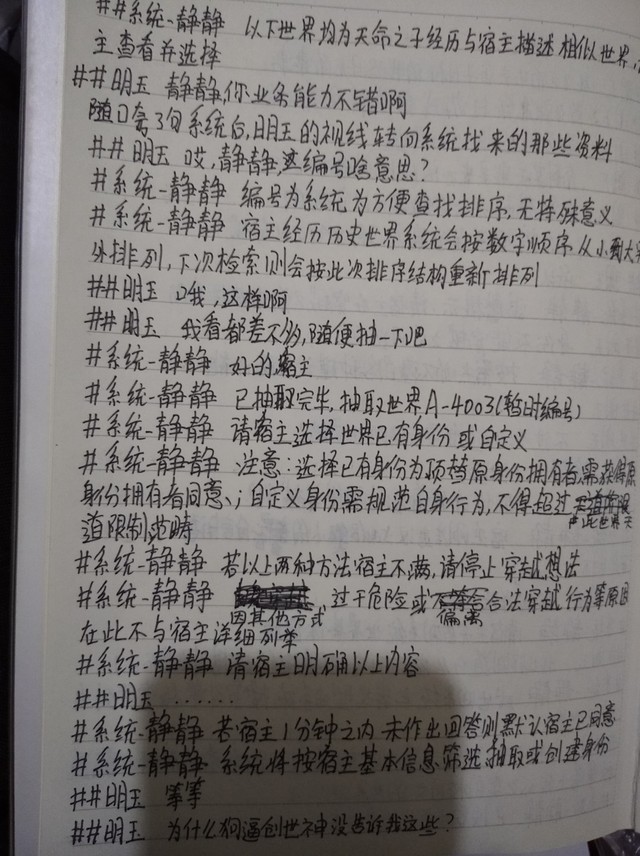 ##系统-静静 以下世界均为天命之子经历与宿主描述相似世界,
主查看并选择
##明玉 静静,你业务能力不错啊
随口夸了句系统后,明玉的视线转向系统找来的那些资料
##明玉 哎,静静,这编号啥意思?
#系统-静静 编号为系统为方便查找排序,无特殊意义
#系统-静静 宿主经历历史世界系统会按数字顺序从小到大
外排列,下次检索则会按此次排序结构重新排列
##明玉 哦,这样啊
##明玉 我看都差不多,随便抽一下吧
#系统-静静 好的宿主
#系统-静静 已抽取完毕,抽取世界A-4003(暂时编号)
#系统-静静 请宿主选择世界已有身份或自定义
#系统-静静 注意:选择已有身份为顶替原身份拥有者,需获得原
身份拥有者同意、;自定义身份需规范自身行为,不得超过此世界天
道限制范畴
#系统-静静 若以上两种方法宿主不满,请停止穿越想法
#系统-静静 因其他方式过于危险或偏离合法穿越行为等原因
在此不与宿主详细列举
#系统-静静 请宿主明确以上内容
##明玉 ......
#系统-静静 若宿主1分钟之内未作出回答则默认宿主已同意
#系统-静静 系统将按宿主基本信息筛选抽取或创建身份
##明玉 等等
##明玉 为什么狗逼创世神没告诉我这些?